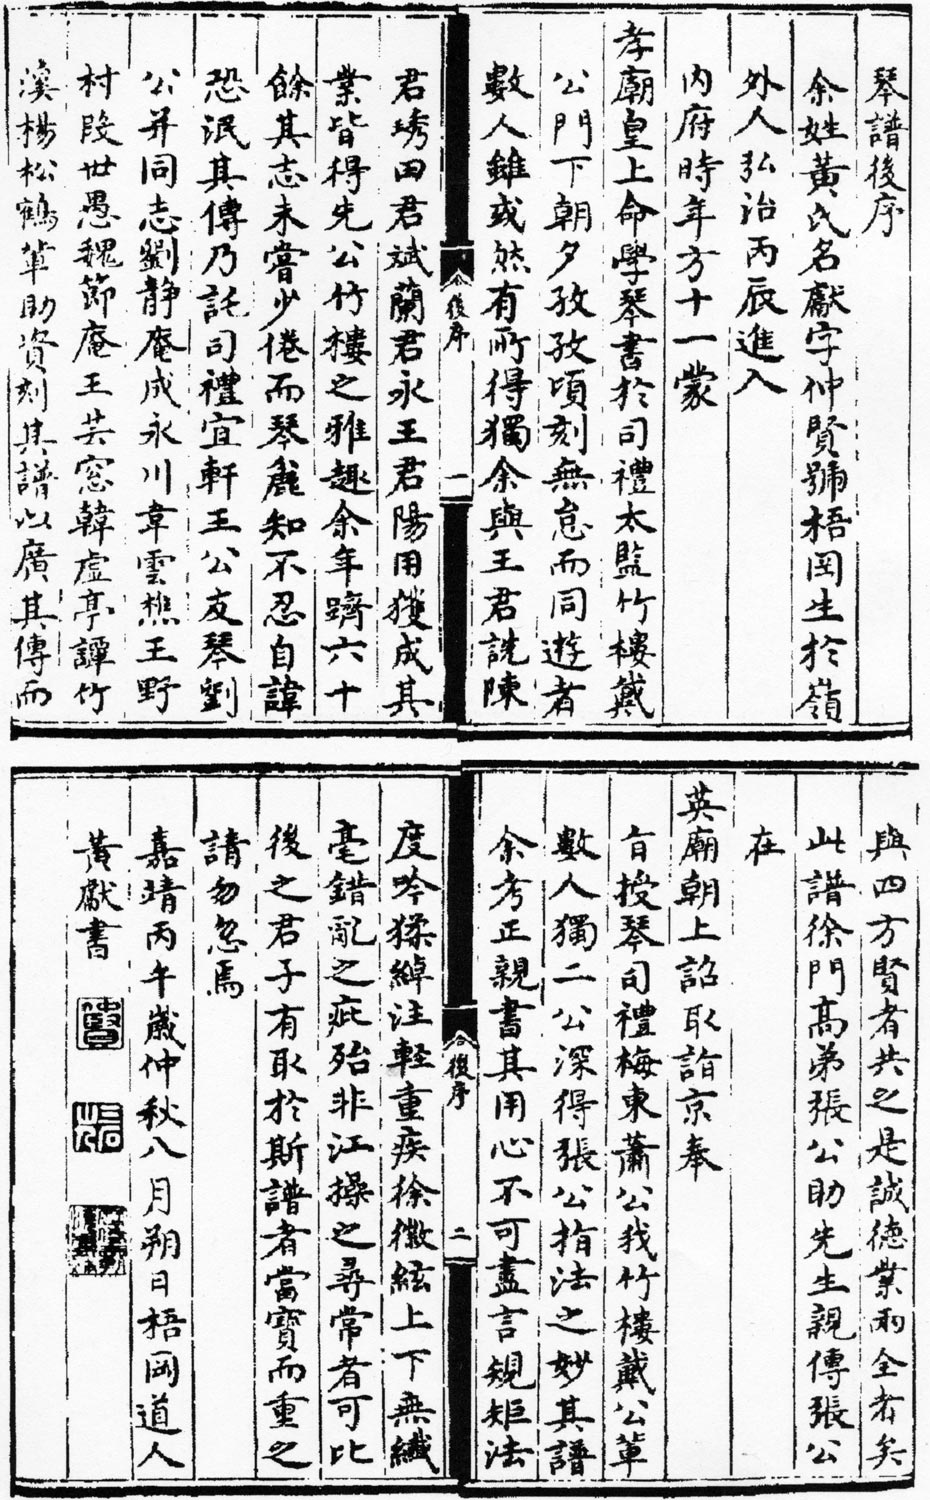 琴譜後序
余姓黃氏名獻字仲賢號梧岡生於嶺
外人弘治丙辰進入
內府時年方十一蒙
孝廟皇上命學琴書於司禮太監竹樓戴
公門下朝夕孜孜頃刻無怠而同遊者
數人雖或然有所得獨余與王君詵陳
後序
一
君琇田君斌蘭君永王君陽用獲成其
業皆得先公竹樓之雅趣余年躋六十
餘其志未嘗少倦而琴麄知不忍自諱
恐泯其傳乃託司禮宜軒王公友琴劉
公并同志劉静庵成永川韋雲樵王野
村段世愚魏節庵王芸窓韓虛亭譚竹
溪楊松鶴軰助資刻其譜以廣其傳而
與四方賢者共之是誠德業兩全者矣
此譜徐門高弟張公助先生親傳張公
在
英廟朝上詔取詣京奉
旨授琴司禮梅東蕭公我竹樓戴公軰
數人獨二公深得張公指法之妙其譜
余考正親書其用心不可盡言規矩法
後序
二
度吟猱綽注輕重疾徐徽絃上下無纖
毫錯亂之疵殆非江操之尋常者可比
後之君子有取於斯譜者當寶而重之
請勿忽焉
嘉靖丙午歲仲秋八月朔日梧岡道人
黃獻書